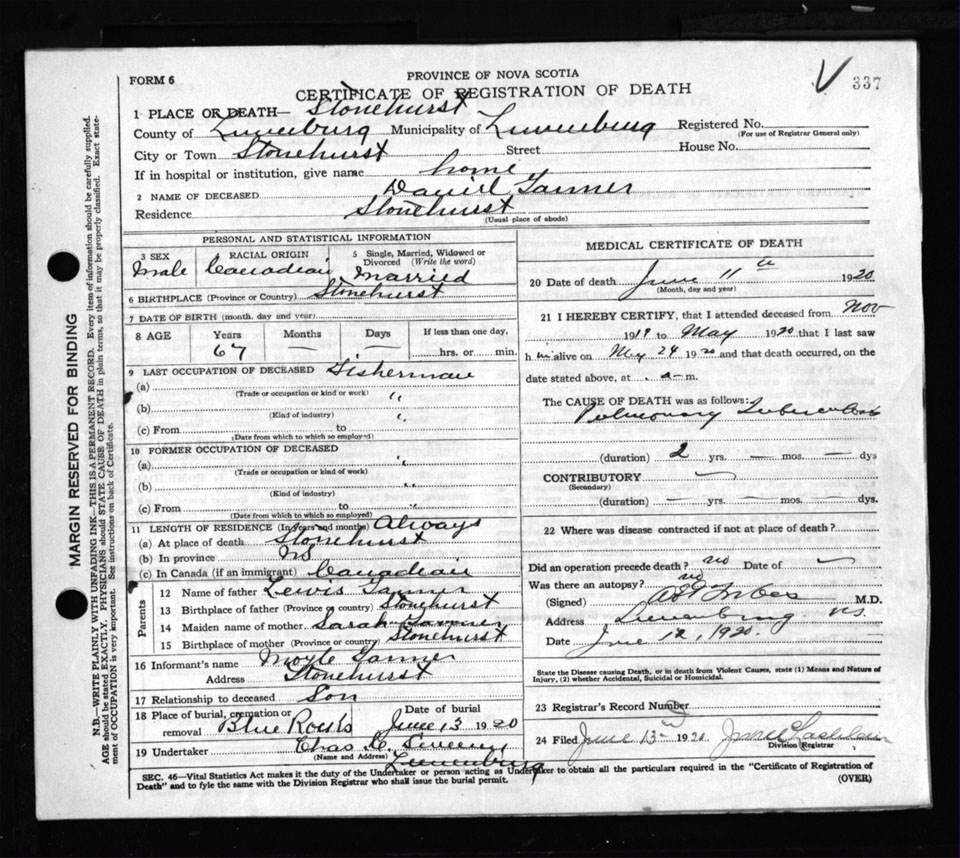 PROVINCE OF NOVA SCOTIA
FORM 6
CERTIFICATE OF REGISTRATION OF DEATH
V 337
1 PLACE OR DEATH Stonehurst
County of Lunenburg Municipality of Lunenburg Registered No.
(For use of Registrar General only)
City or Town Stonehurst Street House No.
If in hospital or institution, give name home
2 NAME OF DECEASED Daniel Tanner
Residence Stonehurst
(Usual place of abode)
PERSONAL AND STATISTICAL INFORMATION
3 SEX RACIAL ORIGIN 5 Single, Married, Widowed or Divorced (Write the word)
Male Canadian Married
6 BIRTHPLACE (Province or Country) Stonehurst
7 DATE OF BIRTH (month, day and year)
8 AGE Years Months Days If less than one day,
67 — — hrs. or min.
9 LAST OCCUPATION OF DECEASED Fisherman
(a) "
(Trade or occupation or kind or work)
(b) "
(Kind of industry)
(c) From to
(Date from which to which so employed)
10 FORMER OCCUPATION OF DECEASED "
(a)
(Trade or occupation or kind of work)
(b) "
(Kind of industry)
(c) From to
(Date from which to which so employed)
11 LENGTH OF RESIDENCE (In years and months) Always
(a) At place of death Stonehurst
(b) In province NS
(c) In Canada (if an immigrant) Canadian
Parents
12 Name of father Lewis Tanner
13 Birthplace of father (Province or country) Stonehurst
14 Maiden name of mother Sarah Tanner
15 Birthplace of mother (Province or country) Stonehurst
16 Informant's name Moyle Tanner
Address Stonehurst
17 Relationship to deceased Son
18 Place of burial, cremation or removal Blue Rocks Date of burial June 13 1920
19 Undertaker Chas
(Name and Address) Lunenburg
MEDICAL CERTIFICATE OF DEATH
20 Date of death June 11 th 1920
(Month, day and year)
21 I HEREBY CERTIFY, that I attended deceased from Nov
1919 to May 1920 that I last saw
h im alive on May 24 1920 and that death occurred, on the
date stated above, at m.
The CAUSE OF DEATH was as follows:
Pulmonary Tuberculosis
(duration) 2 yrs. — mos. — dys
CONTRIBUTORY —
(Secondary)
(duration) — yrs. — mos. — dys.
22 Where was disease contracted if not at place of death?
Did an operation precede death? no Date of —
Was there an autopsy? no
(Signed) M.D.
Address Lunenburg NS.
Date June 12, 1920.
State the Disease causing Death, or in death from Violent Causes, state (1) Means and Nature of Injury, (2) whether Accidental, Suicidal or Homicidal.
23 Registrar's Record Number
24 Filed June 13 1920
Division Registrar
SEC. 46—Vital Statistics Act makes it the duty of the Undertaker or person acting as Undertaker to obtain all the particulars required in the "Certificate of Registration of Death" and to fyle the same with the Division Registrar who shall issue the burial permit.
(OVER)
MARGIN RESERVED FOR BINDING
N.B.—WRITE PLAINLY WITH UNFADING INK—THIS IS A PERMANENT RECORD. Every item of information should be carefully supplied.
AGE should be stated EXACTLY. PHYSICIANS should STATE CAUSE OF DEATH in plain terms, so that it may be properly classified. Exact state-
ment of OCCUPATION is very important. See instructions on back of Certificate.